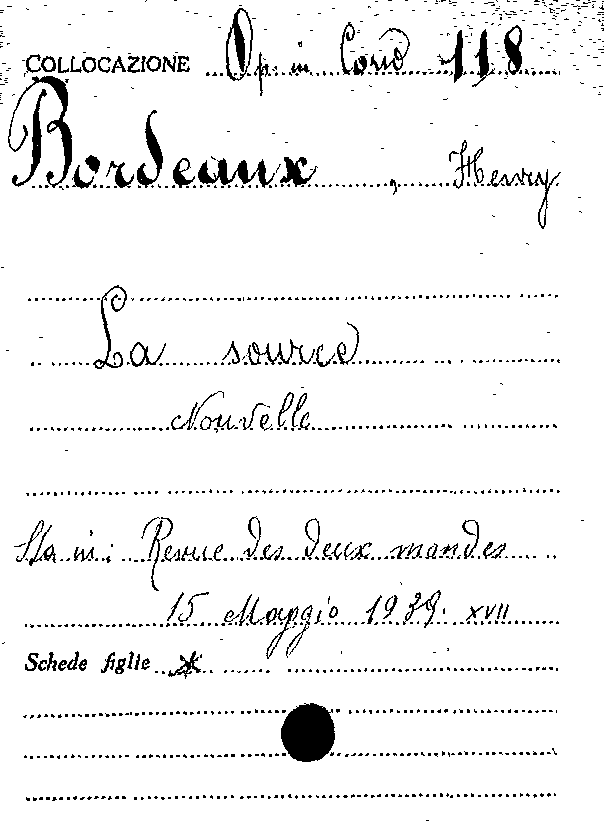 COLLOCAZIONE Op. in Cons 118
Bordeaux, Henry
La source
Nouvelle
Sta in: Revue des deux mondes
15 Maggio 1939. XVII
Schede figlie *